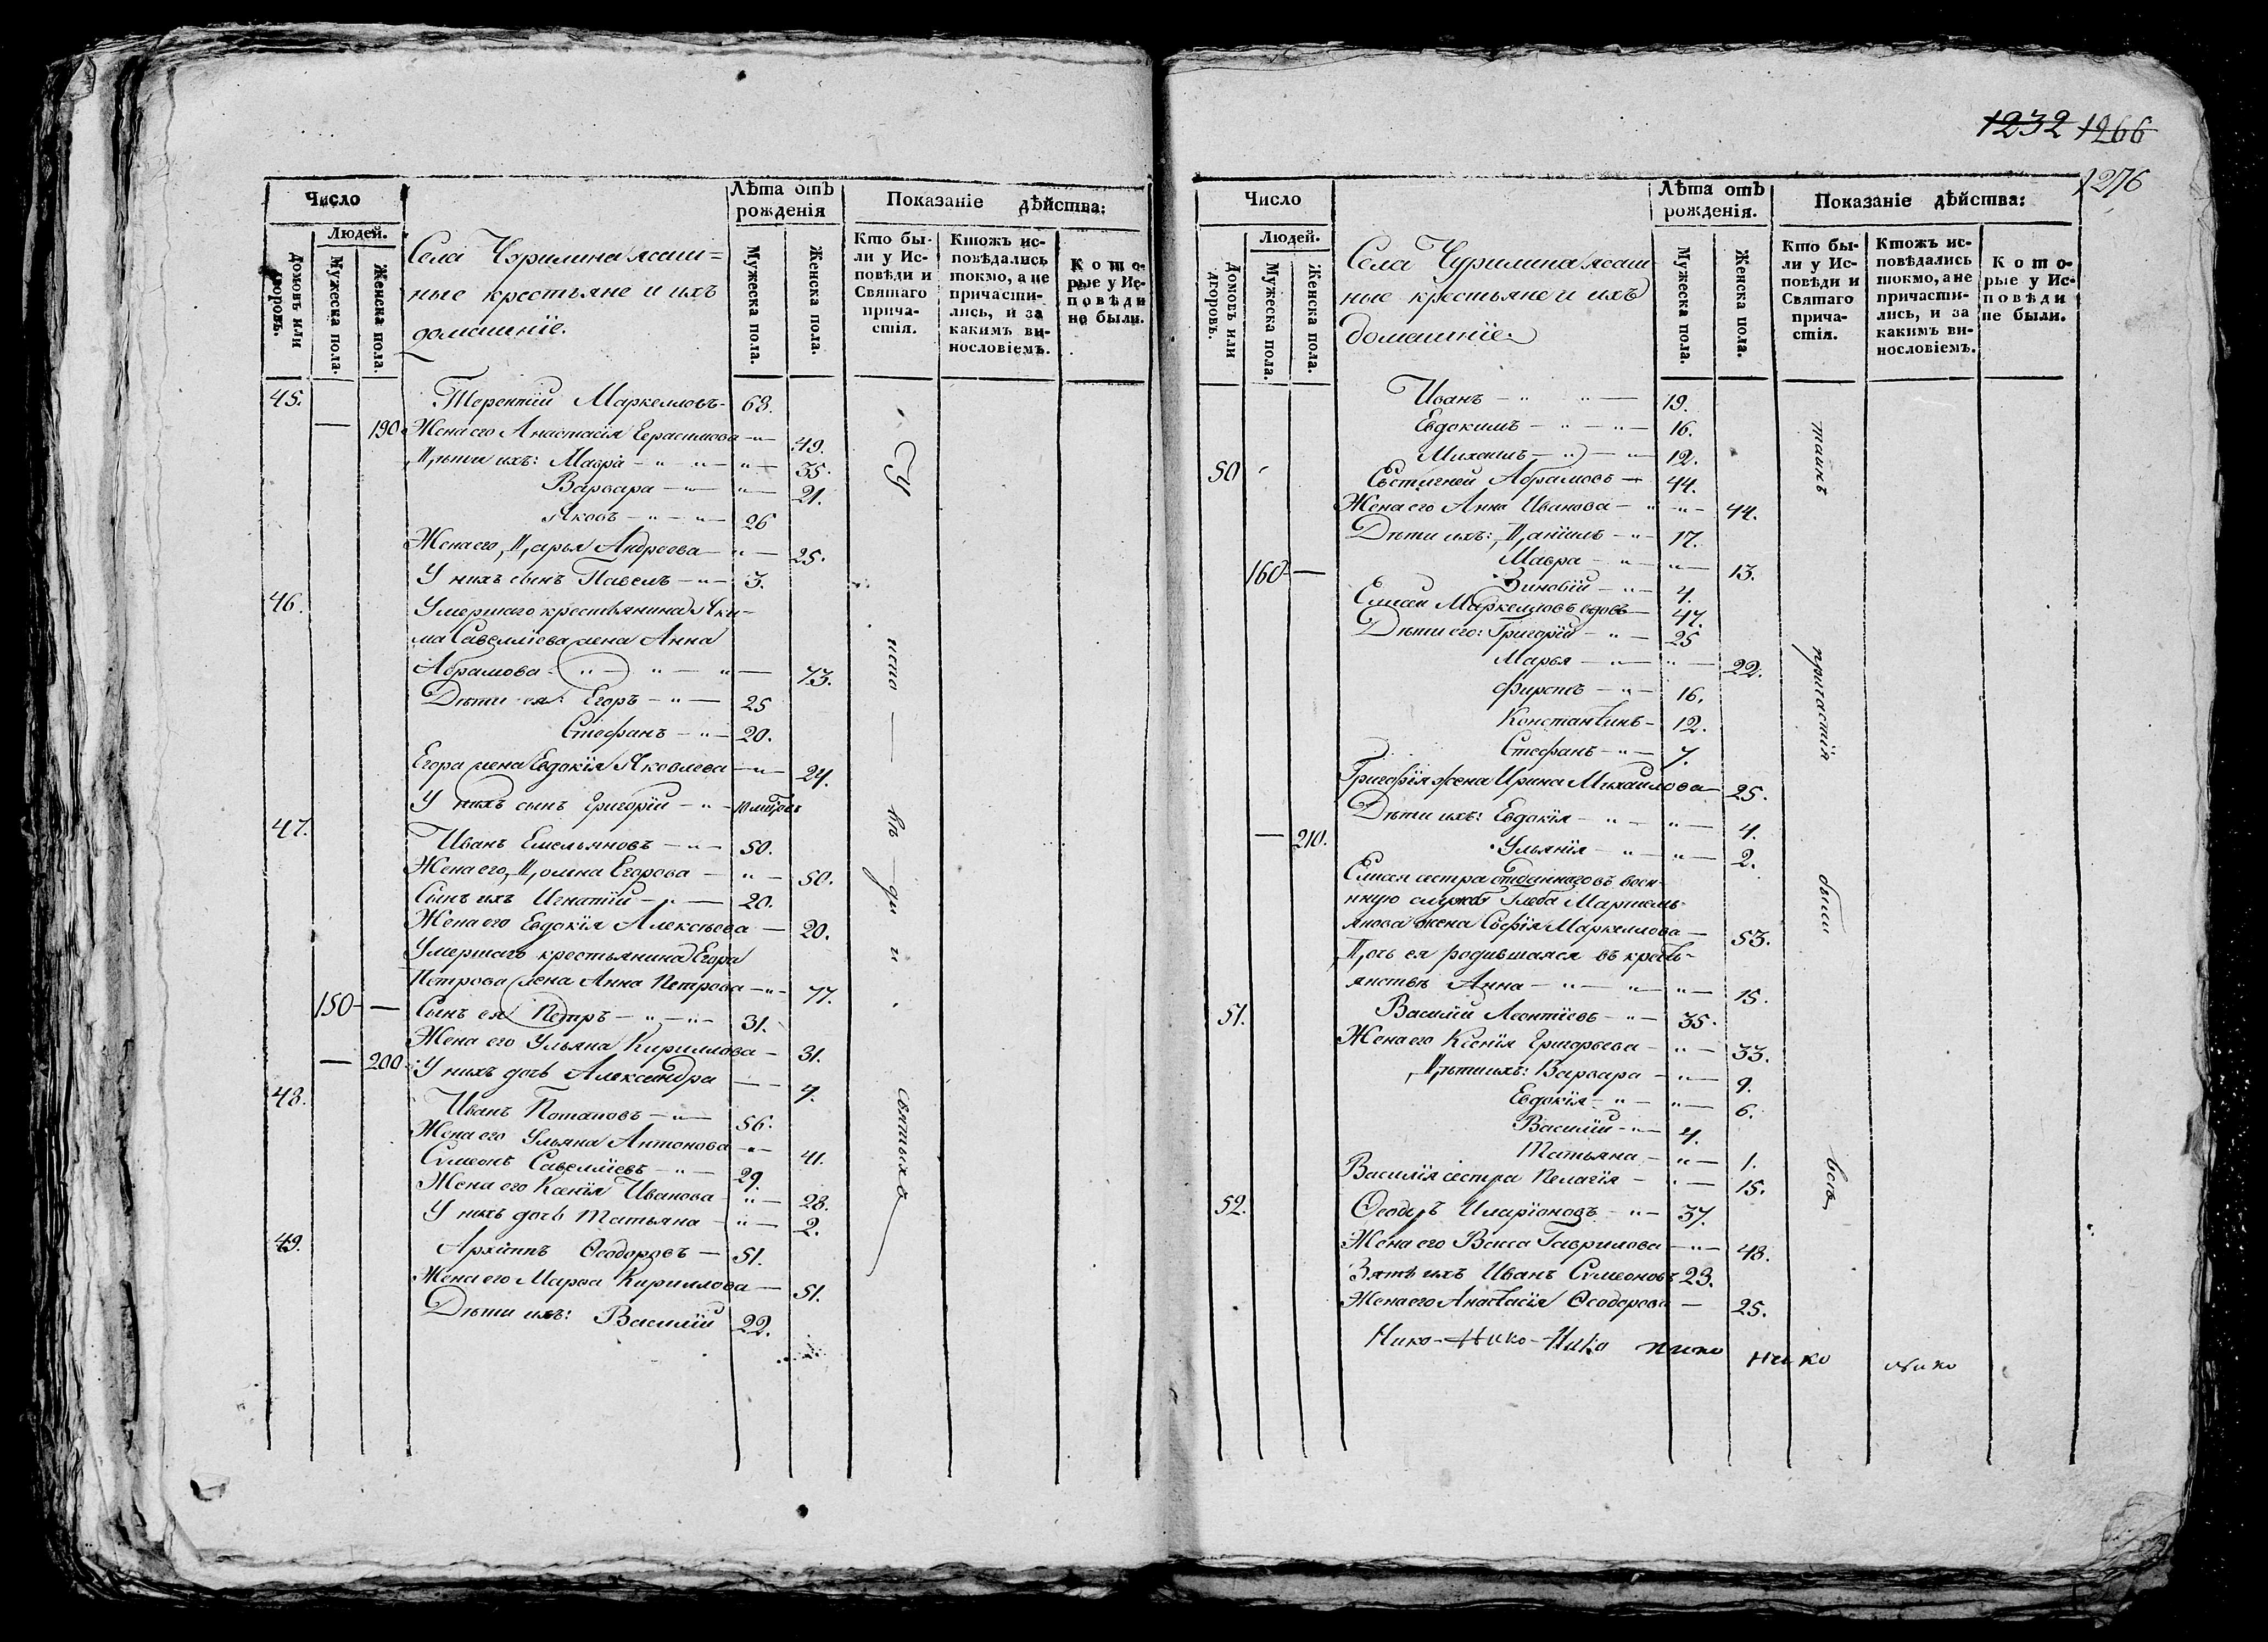 Число
Людей.
Домовъ или дворовъ.
Мужеска пола.
Женска пола.
Села Чурилина ясаш=
ные крестьяне и ихъ
домашніе.
Лѣта отъ
рожденія
Мужеска пола.
Женска пола.
Показаніе дѣйства:
Кто бы-
ли у Ис-
повѣди и
Святаго
прича-
стія.
Ктожъ ис-
повѣдались
токмо, а не
причасти-
лись, и за
какимъ ви-
нословіемъ.
Кото-
рые у Ис-
повѣди
не были.
45. Терентій Маркелловъ - 68.
— 190 Жена его Анастасія Герасимова — " — 49.
Дѣти ихъ: Мавра — " — " — " — 35.
Варвара — " — " — 21.
Яковъ — " — " — 26
Жена его Дарья Андреева — " — 25.
У нихъ сынъ Павелъ — " — 3.
46. Умершаго крестьянина Яки-
ма Савелліева жена Анна
Абрамова: " — " — " — 73.
Дѣти ея: Егоръ — " — 25
Стефанъ — " — 20.
Егора жена Евдокія Яковлева — " — 24.
У нихъ сынъ Григорій — " —
47. Иванъ Емельяновъ — " — 50.
Жена его Домна Егорова — " — 50.
Сынъ ихъ Игнатій — " — 20.
Жена его Евдокія Алексѣева — 20.
Умершаго крестьянина Егора
Петрова жена Анна Петрова — " — 77.
150 — Сынъ ея Петръ — " — " — 31.
Жена его Ульяна Кириллова — 31.
— 200 У нихъ дочь Александра — — 7.
48. Иванъ Потаповъ — " — 56.
Жена его Ульяна Антонова — " — 41.
Симеонъ Савелліевъ — " — 29.
Жена его Ксенія Иванова — " — 28.
У нихъ дочь Татьяна — " — 2.
49. Архіппъ Ѳеодоровъ — 51.
Жена его Марѳа Кириллова — 51.
Дѣти ихъ: Василій 22.
У
испо — вѣ — ди и
святыхъ
1232 1266
1276
Число
Людей.
Домовъ или дворовъ.
Мужеска пола.
Женска пола.
Села Чурилина ясаш-
ные крестьяне и ихъ
домашніе
Лѣта отъ
рожденія.
Мужеска пола.
Женска пола.
Показаніе дѣйства:
Кто бы-
ли у Ис-
повѣди и
Святаго
прича-
стія.
Ктожъ ис-
повѣдались
токмо, а не
причасти-
лись, и за
какимъ ви-
нословіемъ.
Кото-
рые у Ис-
повѣди
не были.
Иванъ — " " — 19.
Евдокимъ — " — " — 16.
Михаилъ — " — " — 12.
50 Евстигней Абрамовъ — 44.
Жена его Анна Иванова — " — " — 44.
Дѣти ихъ: Даніилъ — " — 17.
160 — Мавра — " — " — 13.
Зиновій — " — 4.
Елисей Маркелловъ вдовъ — 47.
Дѣти его: Григорій — " — 25
Марья — " — " — 22.
Фирсъ — " — 16.
Константинъ — 12.
Стефанъ — " — 7.
Григорія жена Ирина Михаилова — 25.
Дѣти ихъ: Евдокія — " — " — 4.
— 210. Ульянія — " — " — 2.
Елисея сестра отданнаго въ воен-
ную службу Глеба Мартемь-
янова жена Софія Маркеллова — 53.
Дочь ея родившаяся въ кресть-
янствѣ Анна — " — " — " — 15.
51. Василій Леонтіевъ — " — 35.
Жена его Ксенія Григорьева — " — 33.
Дѣти ихъ: Варвара — " — 9.
Евдокія — " — " — 6.
Василій — " — 4.
Татьяна — " — 1.
Василія сестра Пелагія — " — 15.
52. Ѳеодоръ Иларіоновъ — " — 37.
Жена его Васса Гаврилова — " — 48.
Зять ихъ Иванъ Симеоновъ 23.
Жена его Анастасія Ѳеодорова — 25.
таинъ
причастія
были
всѣ
Нико - Нико - Нико нико Нико нико